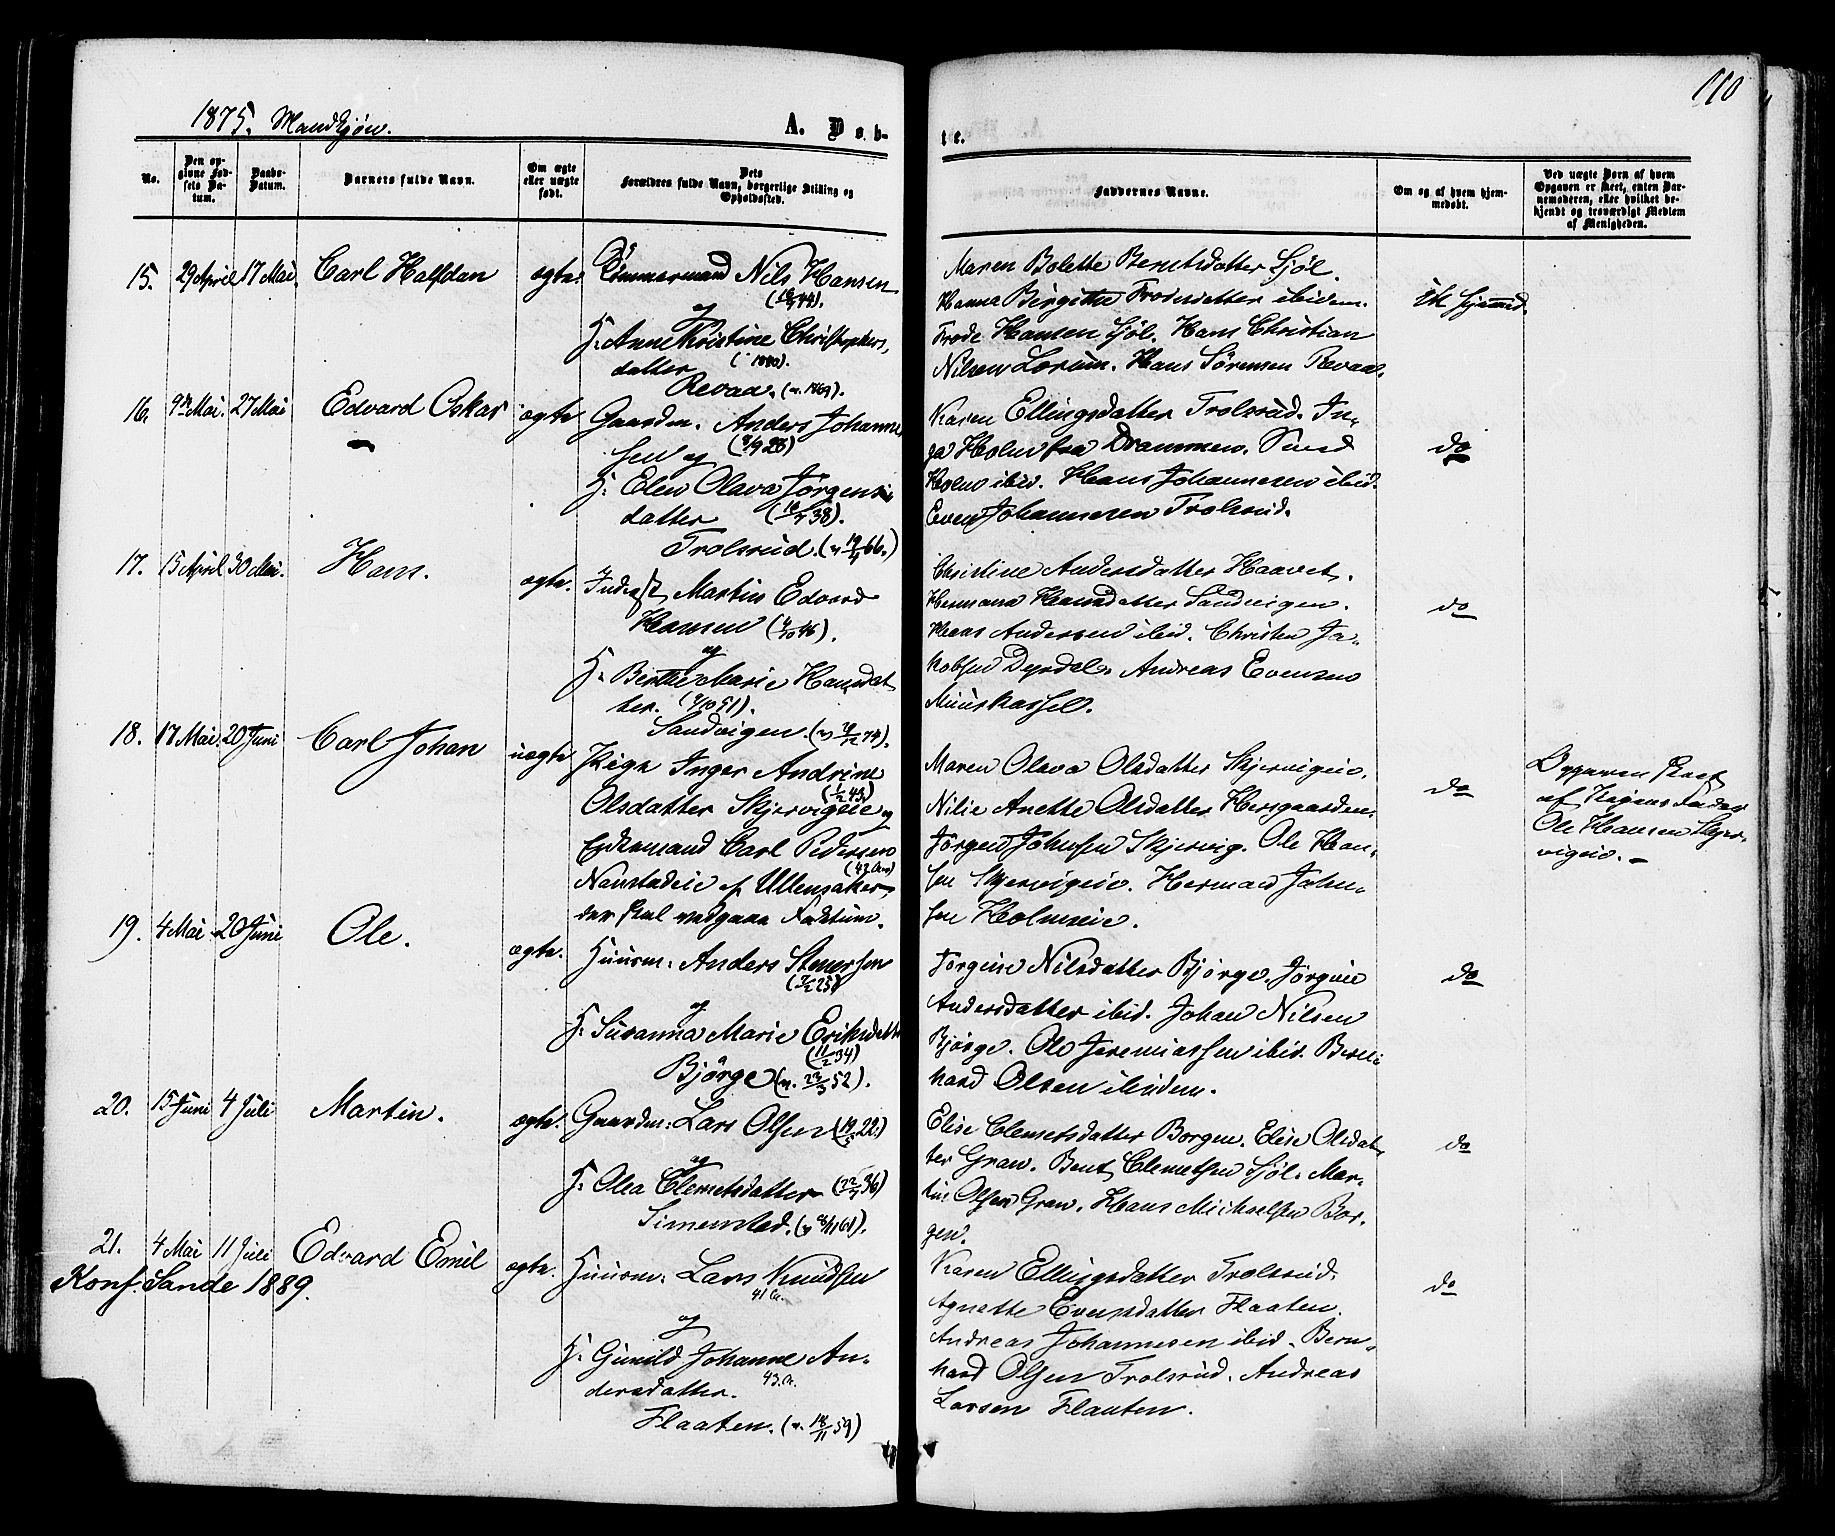 110
1875. Mandkjøn.
A. Døb-
te.
No.
Den op-
givne Fød-
sels Da-
tum.
Daabs-
Datum.
Barnets fulde Navn.
Om ægte
eller uægte
født.
Dets
Forældres fulde Navn, borgerlige Stilling og
Opholdssted.
Faddernes Navne.
Om og af hvem hjem-
medøbt.
Ved uægte Børn af hvem
Opgaven er skeet, enten Bar-
nemoderen, eller hvilket be-
kjendt og troværdigt Medlem
af Menigheden.
15. 29 April 17 Mai. Carl Halfdan ægte. Tømmermand Nils Hansen
og
F. Anne Kristine Christophers,
datter
Revaa. (v. 1869).
Maren Bolette Berntsdatter Sjöl.
Hanna Birgithe Frodesdatter ibidem.
Frode Hansen Sjöl. Hans Christian
Nilsen Lorum. Hans Sörensen Revaa.
ik hjemmed.
16. 9de Mai. 27 Mai Edvard Oskar ægte Gaardm. Anders Johanne
sen og
H. Elen Olava Jörgens
datter (16/7 38).
Trolsrud. (v 19/4 66.)
Karen Ellingsdatter Trolsrud. In-
ga Holm fra Drammen.
Holm ibid. Hans Johannesen ibid.
Even Johannesen Trolsrud.
do
17. 15 April 30 Mai. Hans. ægte. Inderst, Martin Edvard
Hansen (9/10 46).
og
H. Berthe Marie Hansdat
ter. (9/10 51).
Sandvigen. (v 29/12 74).
Christine Andersdatter Haavet.
Hermana Hansdatter Sandvigen.
Hans Andersen ibid. Christen Ja-
kobsen Dyrdal. Andreas Evensen
Muuskassel.
do
18. 17 Mai. 20 Juni Carl Johan uægte Pige Inger Andrine
(1/2 43)
Olsdatter Skjervigeie og
Ungkarlmand Carl Pedersen
Nanstadeie af Ullensaker
der skal vedgaae Factum.
Maren Olava Olsdatter Skjervigeie.
Nilie Anette Olsdatter Hersgaarden.
Jörgen Johnsen Skjervig. Ole Han-
sen Skjervigeie. Herman John-
sen Holmseie.
do
Opgaven skeet
af Pigens Fader
Ole Hansen Skjer-
vigeie. –
19. 4 Mai 20 Juni Ole. ægte. Huusm. Anders Stenersen
(7/2 25)
og
H. Susanna Marie Eriksdatt
(11/2 34)
Björge (v. 23/3 52).
Jörgine Nilsdatter Björge. Jörgine
Andersdatter ibid. Johan Nilsen
Björge. Ole Jeremiassen ibid. Bern-
hard Olsen ibidem.
do
20. 15 Juni 4 Juli Martin. ægte. Gaardm. Lars Olsen (19/5 22.)
og
H. Olea Clemetsdatter (22/7 36)
Simensted. (v 8/11 61).
Elise Clemetsdatter Borgen. Elise Olsdat
ter Gran. Bent Clemetsen Sjöl. Mar-
tin Olsen Gran. Hans Michaelsen Bor-
gen.
do
21. 4 Mai 11 Juli Edvard Emil ægte. Huusm. Lars Knudsen
41 Ar.
Konf. Sande 1889.
og
H. Gunild Johanne An-
dersdatter. 43. A.
Flaaten. (v. 18/11 59)
Karen Ellingsdatter Trolsrud.
Agnethe Evensdatter Flaaten.
Andreas Johannesen ibid. Bern-
hard Olsen Trolsrud. Andreas
Larsen Flaaten.
do